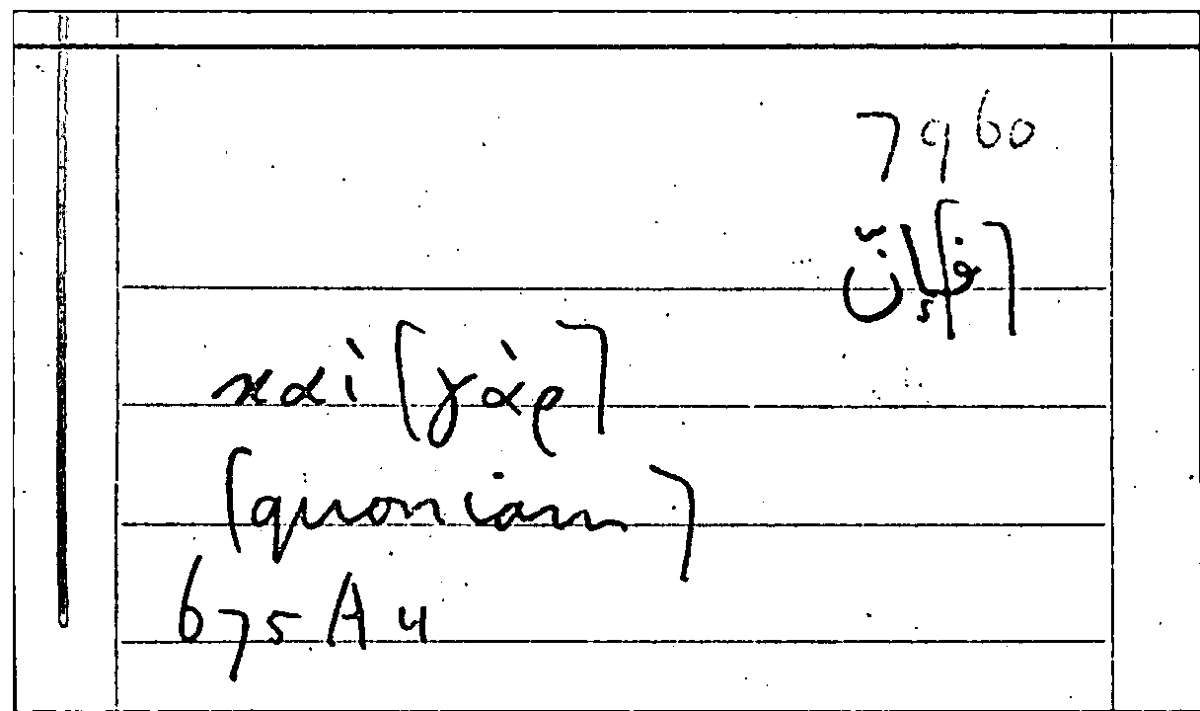 7960
[فإنّ]
καὶ [γὰρ]
[quoniam]
675 A 4